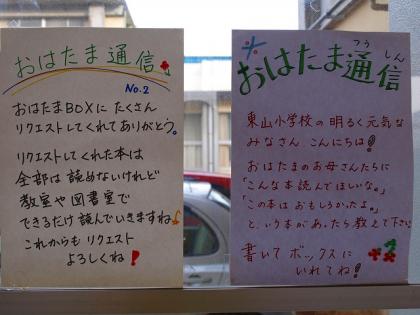 おはたま通信
No.2
おはたまBOXに たくさん
リクエストしてくれてありがとう。
リクエストしてくれた本は
全部は 読めないけれど
教室や図書室で
できるだけ読んでいきますね
これからも リクエスト
よろしくね!
つう しん
おはたま通信
東山小学校の 明るく元気な
みなさん、こんにちは!
おはたまのお母さんたちに
「こんな本読んでほしいな。」
「この本は おもしろかったよ。」
と、いう本があったら教えて下さい
書いて ボックスに
いれてね!